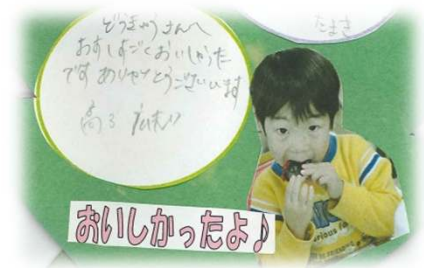 ぞうきゅうさんへ
おすしすごくおいしかった
です ありがとうございます
たまき
おいしかったよ♪